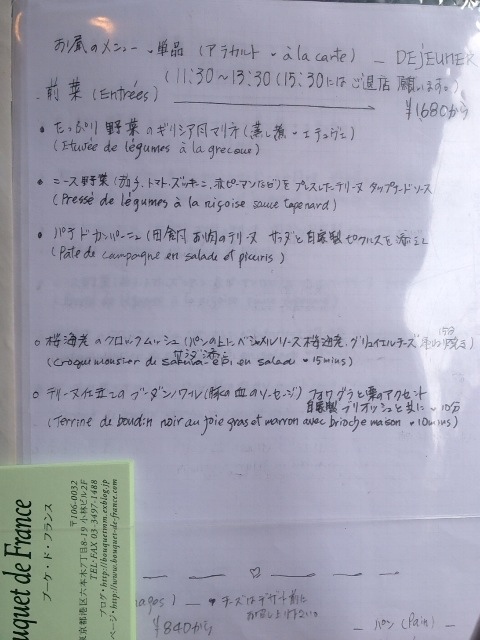 お昼のメニュー・単品 (アラカルト・à la carte) — DEJEUNER
(11:30 〜 13:30 (15:30にはご退店 願います。)
前菜 (Entrées)
¥1680から
• たっぷり 野菜のギリシア風マリネ (蒸し煮・エチュヴェ)
(Etuvée de légumes à la grecque)
• ニース野菜 (茄子、トマト、ズッキーニ、赤ピーマンなど) をプレスしたテリーヌ タップナードソース
(Pressé de légumes à la niçoise sauce tapenard)
• パテドカンパーニュ (田舎風 お肉のテリーヌ サラダと自家製ピクルスを添えて
(Pate de campagne en salade et picuris)
○ 桜海老のクロックムッシュ (パンの上にベシャメルソース 桜海老、グリュイエルチーズ
15分
(Croquemousier de sakura-ebi en salade • 15mins)
○ テリーヌ仕立てのブーダンノワール (豚の血のソーセージ) フォワグラと栗のアクセント
自家製ブリオッシュと共に 〜 10分
(Terrine de boudin noir au foie gras et marron avec brioche maison • 10mins)
ouquet de France
ブーケ・ド・フランス
〒106-0032
東京都港区六本木7丁目8-19 小林ビル2F
TEL・FAX 03-3497-1488
ブログ・http://bouquetmm.exblog.jp
ページ・http://www.bouquet-de-france.com
mages) — • チーズはデザート前に
¥840から
— パン (Pain) —